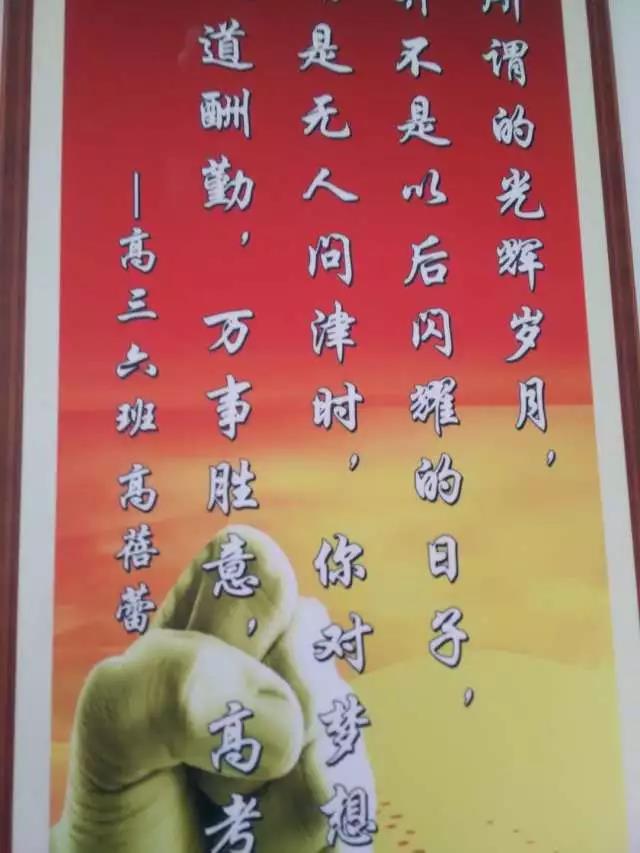 所谓的光辉岁月，
并不是以后闪耀的日子，
是无人问津时，你对梦想
道酬勤，万事胜意，高考
—高三六班 高蓓蕾